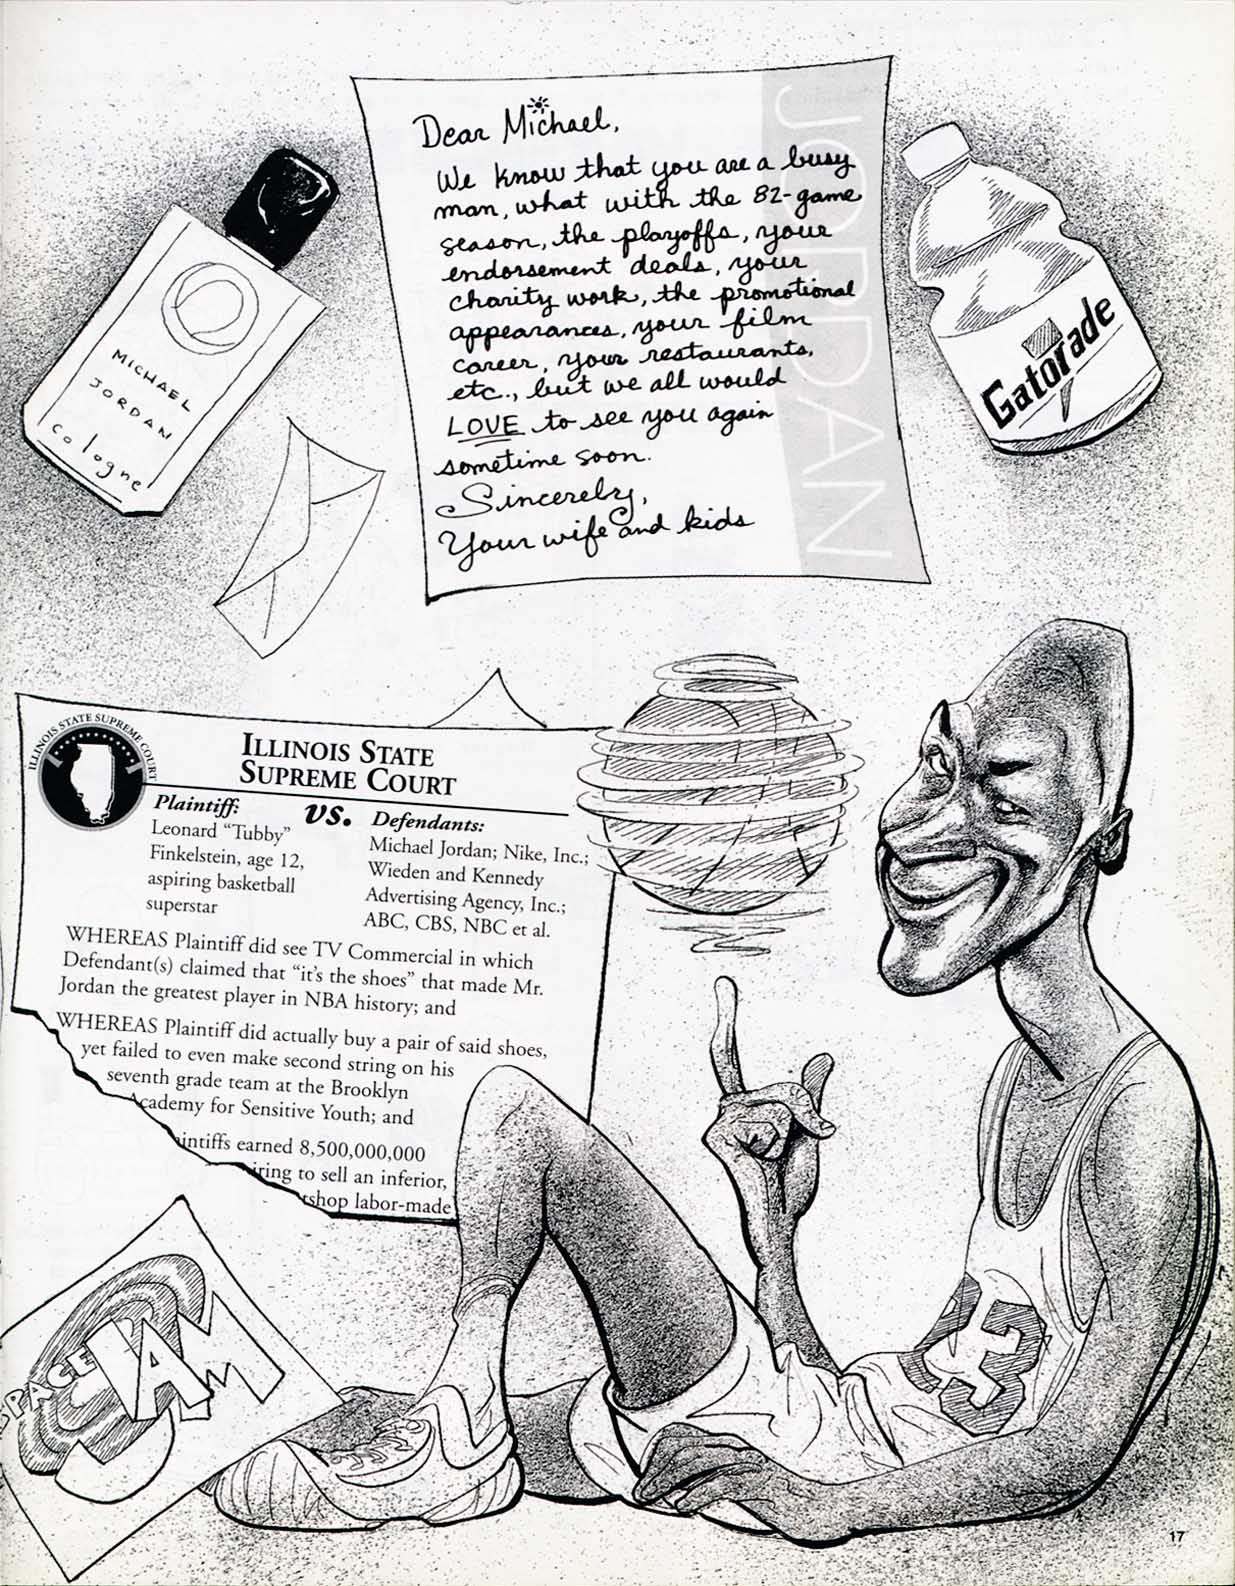 Dear Michael,
We know that you are a busy
man, what with the 82-game
season, the playoffs, your
endorsement deals, your
charity work, the promotional
appearances, your film
career, your restaurants,
etc., but we all would
LOVE to see you again
sometime soon.
Sincerely,
Your wife and kids
JORDAN
MICHAEL
JORDAN
cologne
Gatorade
ILLINOIS STATE SUPREME COURT
ILLINOIS STATE
SUPREME COURT
Plaintiff:
Leonard “Tubby”
Finkelstein, age 12,
aspiring basketball
superstar
vs.
Defendants:
Michael Jordan; Nike, Inc.;
Wieden and Kennedy
Advertising Agency, Inc.;
ABC, CBS, NBC et al.
WHEREAS Plaintiff did see TV Commercial in which
Defendant(s) claimed that “it's the shoes” that made Mr.
Jordan the greatest player in NBA history; and
WHEREAS Plaintiff did actually buy a pair of said shoes,
yet failed to even make second string on his
seventh grade team at the Brooklyn
Academy for Sensitive Youth; and
aintiffs earned 8,500,000,000
iring to sell an inferior,
tshop labor-made
SPACE
JAM
23
17